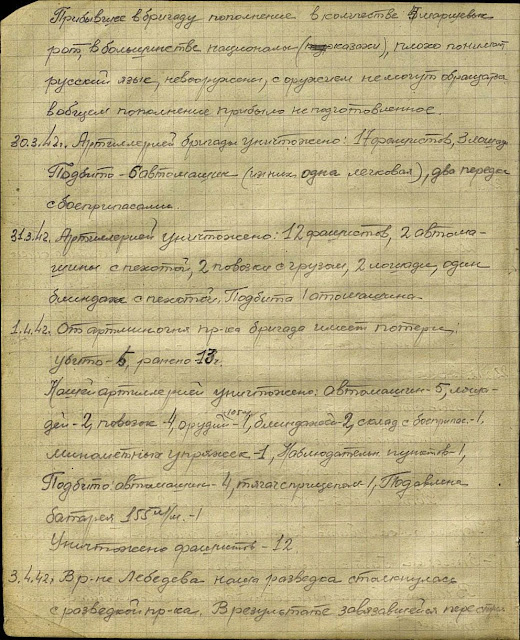 Прибывшее в бригаду пополнение в количестве 5 маршевых
рот, в большинстве националы (казахи), плохо понимают
русский язык, невооружены, с оружием не могут обращаться
вобщем пополнение прибыло неподготовленное.
30.3.42г. Артиллерией бригады уничтожено: 17 фашистов, 3 лошади
Подбито - 6 автомашин (из них одна легковая), два передка
с боеприпасами.
31.3.42. Артиллерией уничтожено: 12 фашистов, 2 автома-
шины с пехотой, 2 повозки с грузом, 2 лошади, один
блиндаж с пехотой. Подбита 1 атомашина.
1.4.42. От артминогня пр-ка бригада имеет потери:
убито - 5, ранено 13ч.
Нашей артиллерией уничтожено: автомашин - 5, лоша-
дей - 2, повозок - 4, орудий - 1, блиндажей 2, склад с боеприпас. - 1,
минометных упряжек - 1, Наблюдательн пунктов - 1,
Подбито: автомашин - 4, тягач с прицепом - 1, Подавлена
баттарея 155 м/м. - 1
Уничтожено фашистов - 12
3.4.42. В р-не Лебедева наша разведка столкнулась
с разведкой пр-ка. В результате завязавшейся перестр